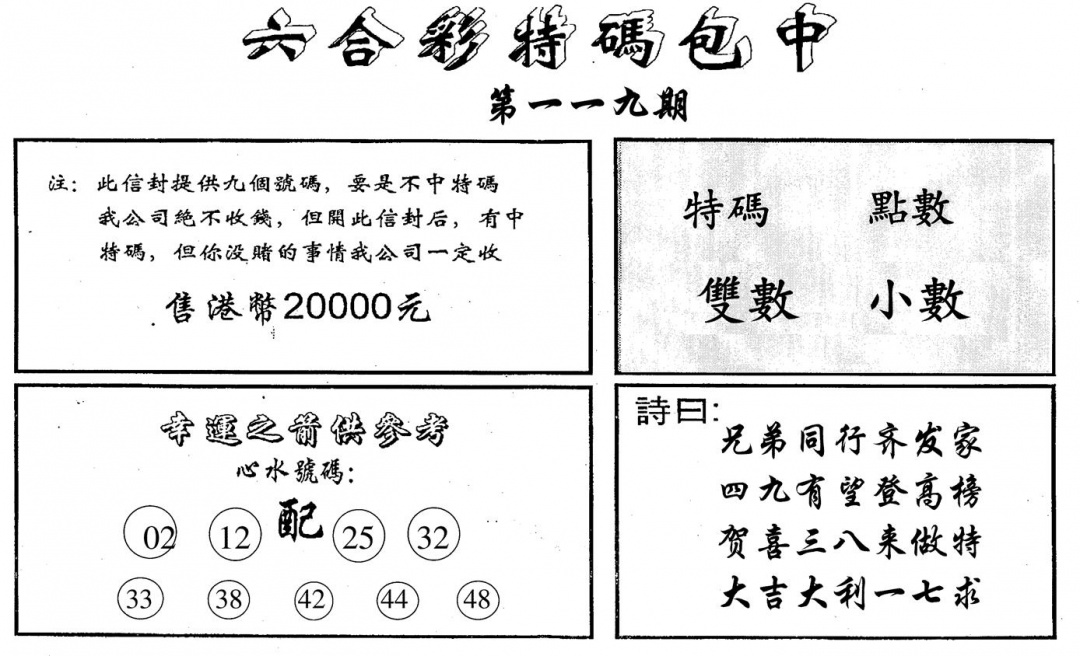 六合彩特碼包中
第一一九期
注：此信封提供九個號碼，要是不中特碼
我公司絕不收錢，但開此信封后，有中
特碼，但你没賭的事情我公司一定收
售港幣20000元
特碼 點數
雙數 小數
幸運之箭供參考
心水號碼：
配
02 12 25 32
33 38 42 44 48
詩曰：
兄弟同行齐发家
四九有望登高榜
贺喜三八来做特
大吉大利一七求